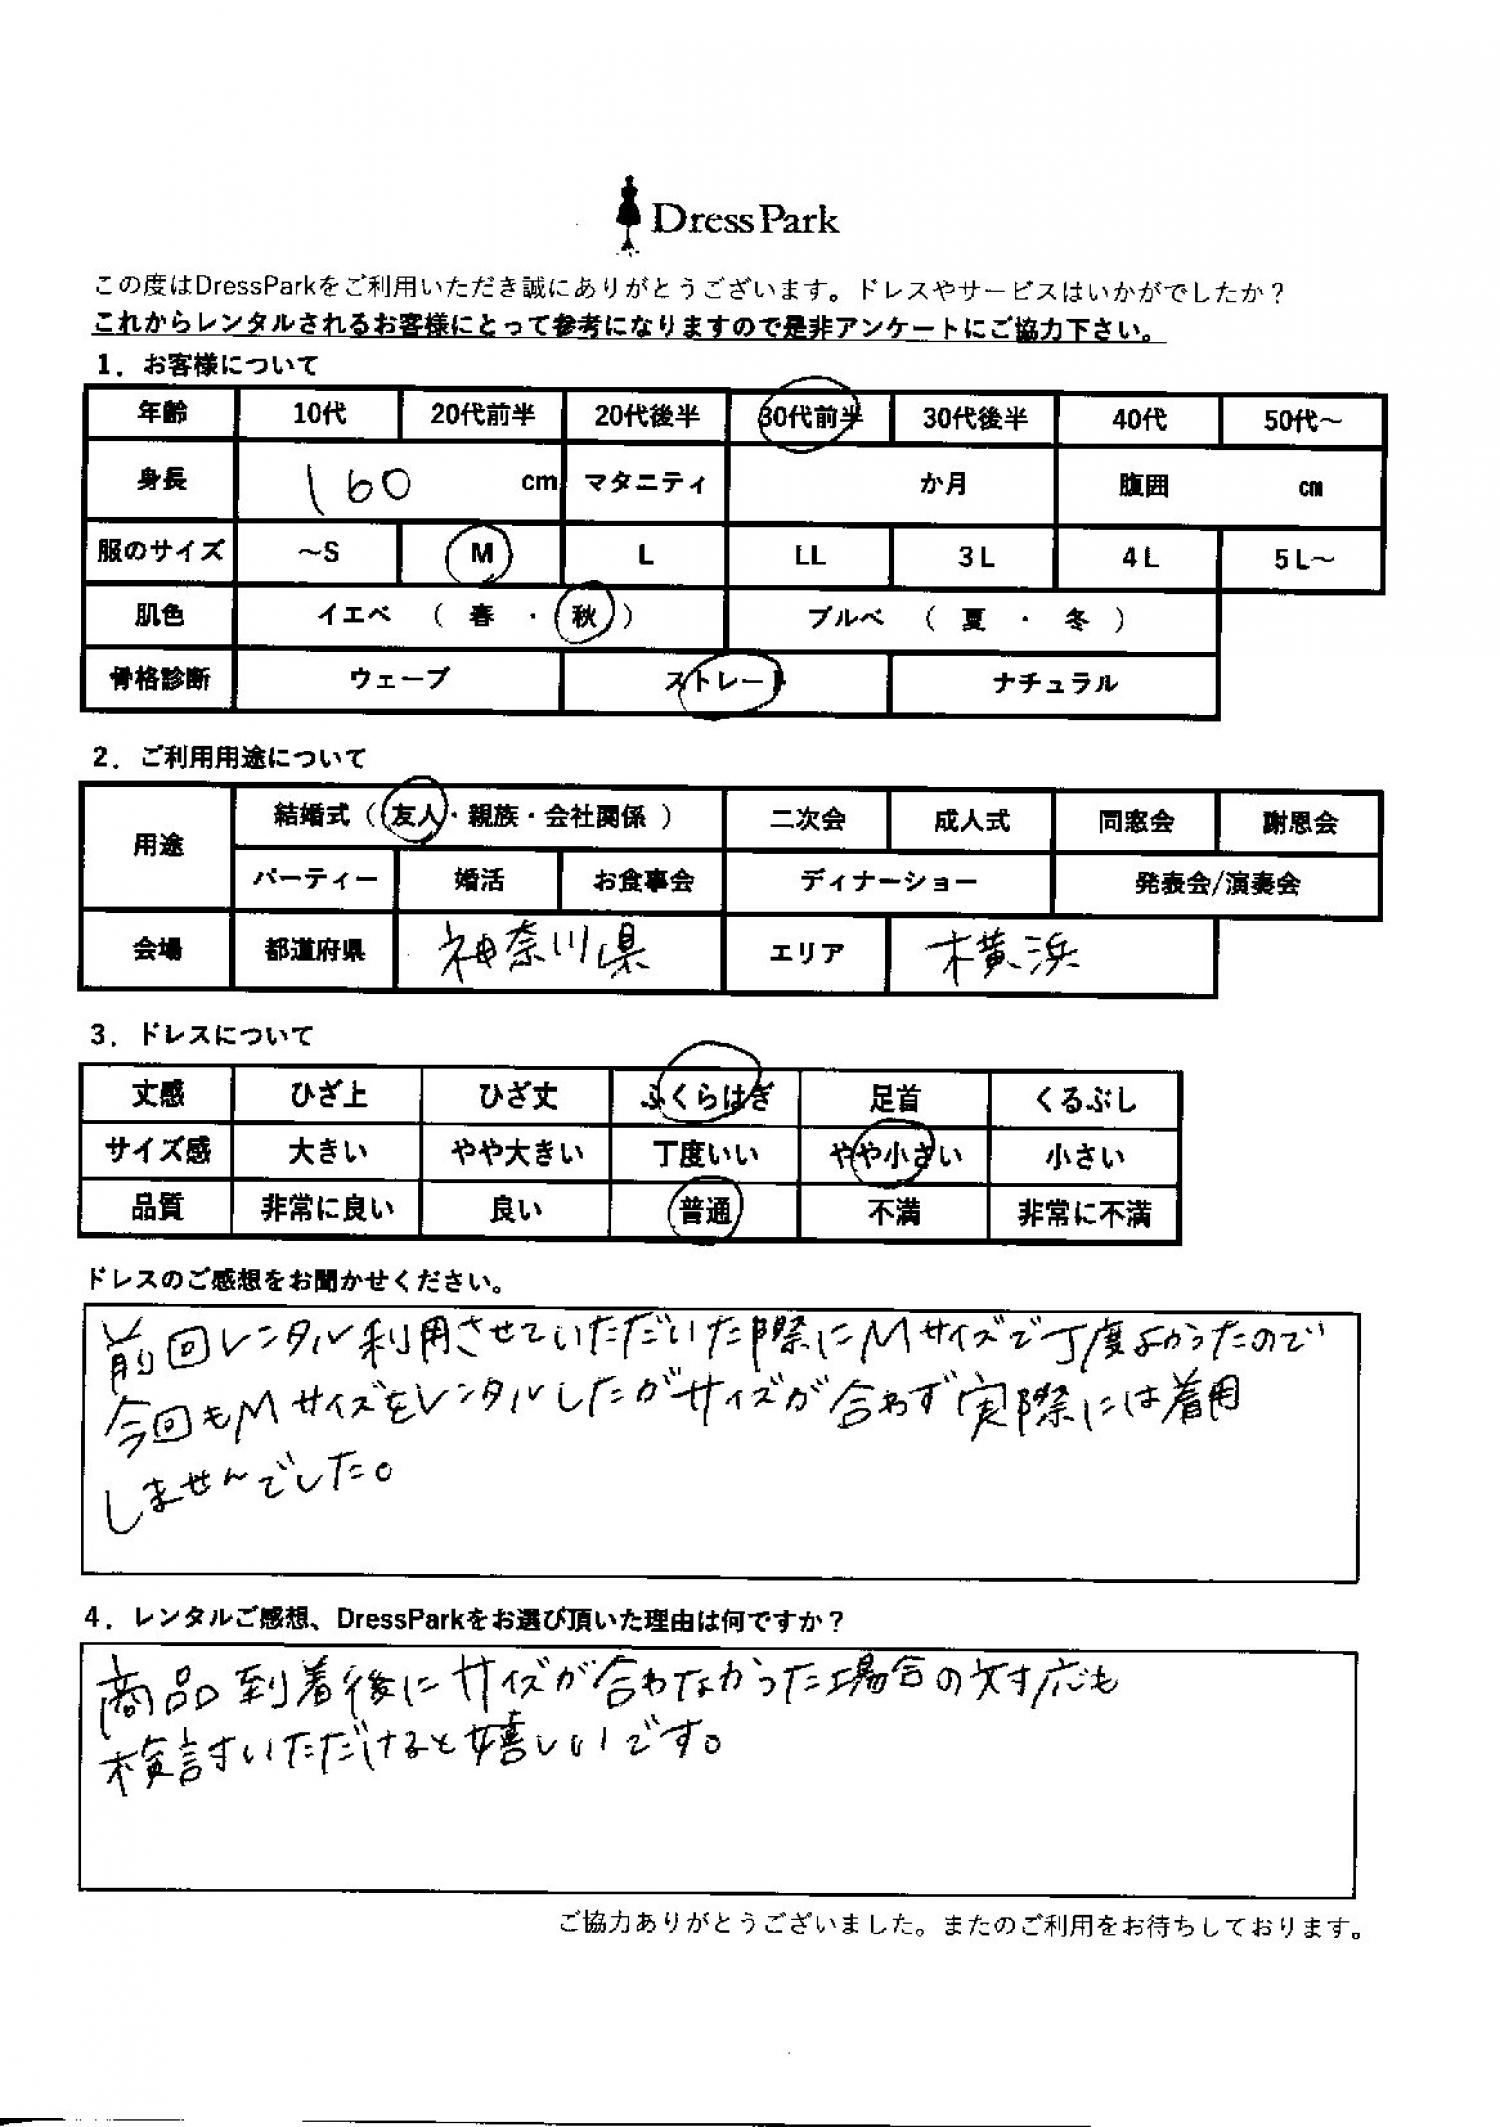 DressPark
この度はDressParkをご利用いただき誠にありがとうございます。ドレスやサービスはいかがでしたか？
これからレンタルされるお客様にとって参考になりますので是非アンケートにご協力下さい。
1．お客様について
年齢 10代 20代前半 20代後半 30代前半 30代後半 40代 50代～
身長 160 cm マタニティ か月 腹囲 cm
服のサイズ ～S M L LL 3L 4L 5L～
肌色 イエベ （ 春 ・ 秋 ） ブルベ （ 夏 ・ 冬 ）
骨格診断 ウェーブ ストレート ナチュラル
2．ご利用用途について
用途 結婚式（ 友人・親族・会社関係 ） 二次会 成人式 同窓会 謝恩会
パーティー 婚活 お食事会 ディナーショー 発表会/演奏会
会場 都道府県 神奈川県 エリア 横浜
3．ドレスについて
丈感 ひざ上 ひざ丈 ふくらはぎ 足首 くるぶし
サイズ感 大きい やや大きい 丁度いい やや小さい 小さい
品質 非常に良い 良い 普通 不満 非常に不満
ドレスのご感想をお聞かせください。
前回レンタル利用させていただいた際にMサイズで丁度よかったので
今回もMサイズをレンタルしたがサイズが合わず実際には着用
しませんでした。
4．レンタルご感想、DressParkをお選び頂いた理由は何ですか？
商品到着後にサイズが合わなかった場合の対応も
検討いただけると嬉しいです。
ご協力ありがとうございました。またのご利用をお待ちしております。